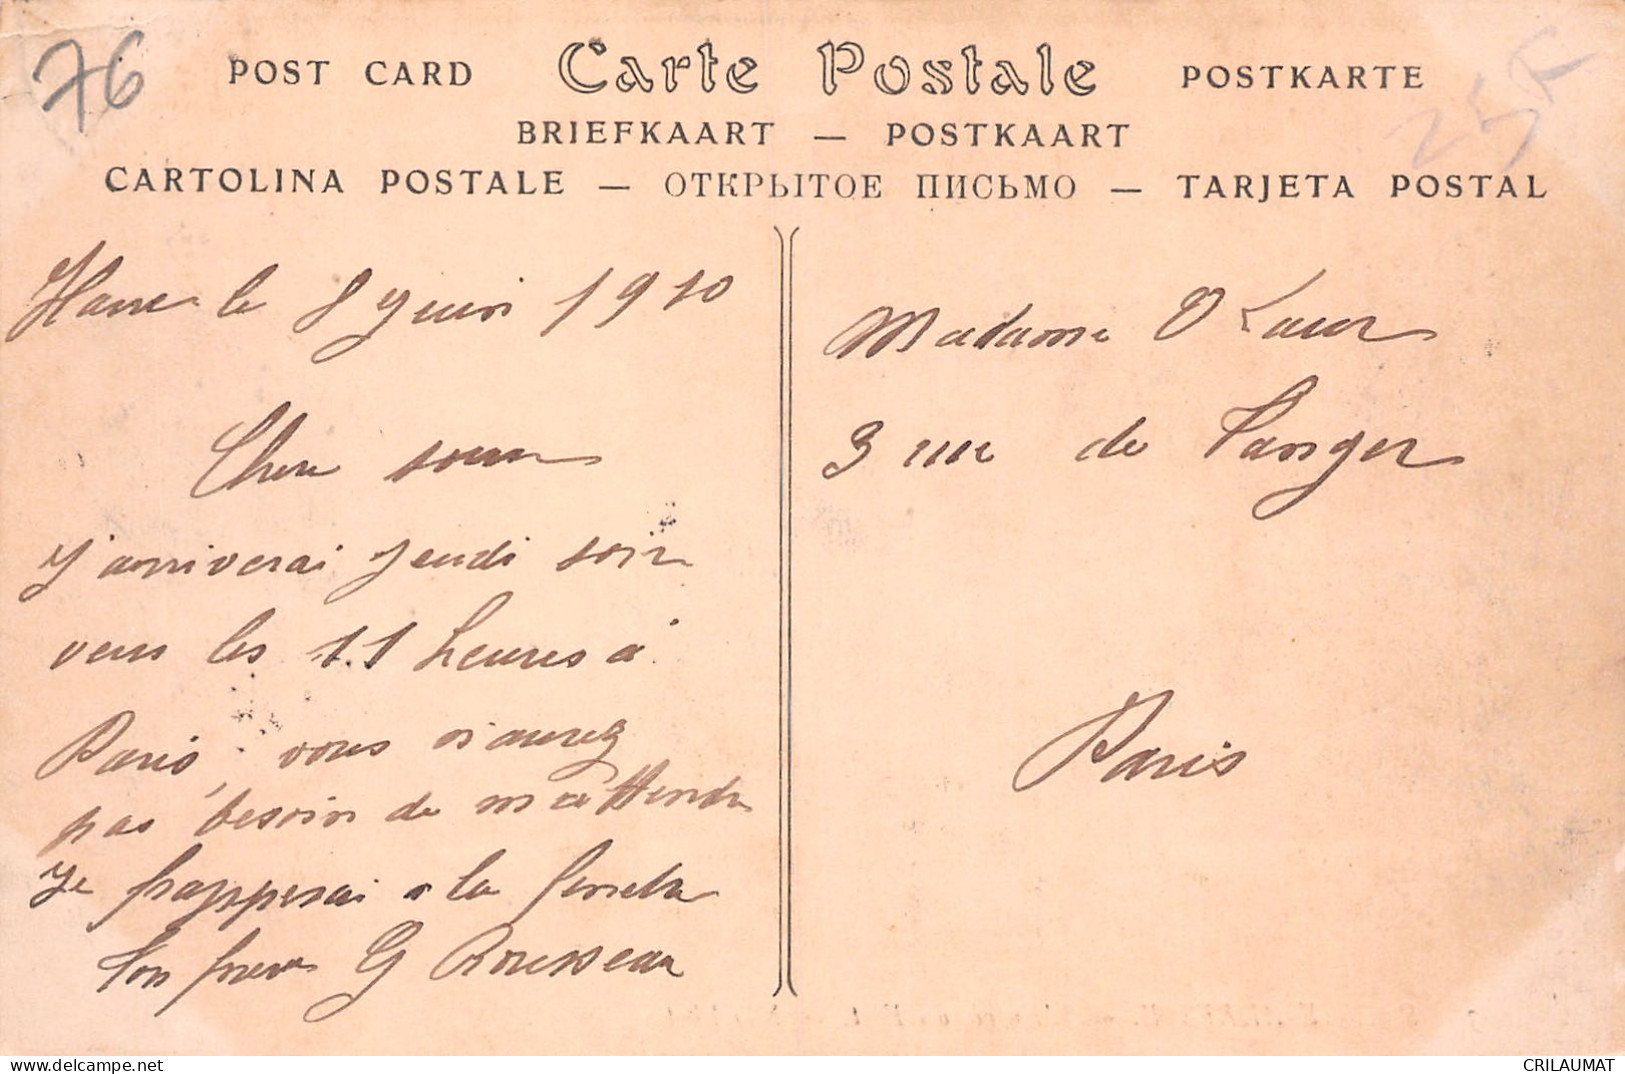 76
POST CARD Carte Postale POSTKARTE
25F
BRIEFKAART — POSTKAART
CARTOLINA POSTALE — ОТКРЫТОЕ ПИСЬМО — TARJETA POSTAL
Havre le 8 Juin 1910
Chere soeur
J'arriverai Jeudi soir
vers les 11 heures à
Paris, vous n'aurez
pas besoin de m'attendre
Je frapperai a la fenetre
Ton frere G Rousseau
Madame
3 rue de Tanger
Paris
CRILAUMAT